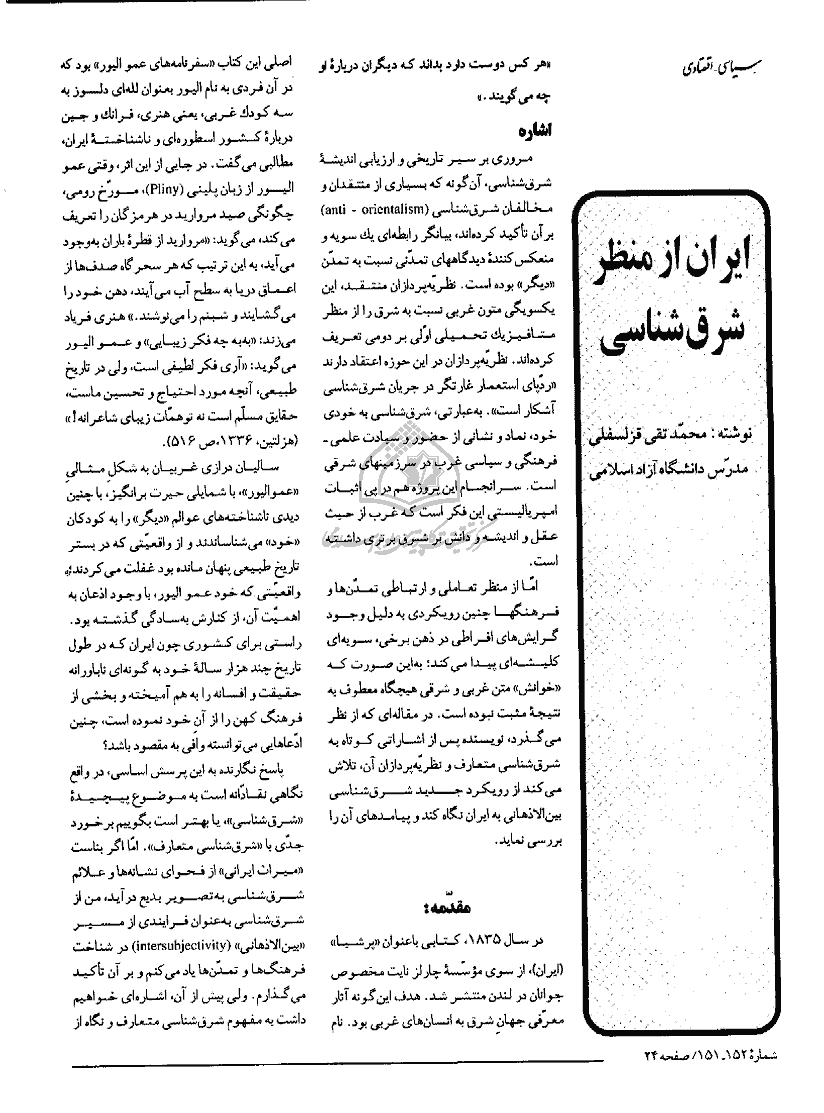 سیاسی-اقتصادی
ایران از منظر
شرق‌شناسی
نوشته: محمّد تقی قزلسفلی
مدرّس دانشگاه آزاد اسلامی
«هر کس دوست دارد بداند که دیگران دربارهٔ او
چه می‌گویند.»
اشاره
مروری بر سیر تاریخی و ارزیابی اندیشهٔ
شرق‌شناسی، آن‌گونه که بسیاری از منتقدان و
مخالفان شرق‌شناسی (anti - orientalism)
بر آن تأکید کرده‌اند، بیانگر رابطه‌ای یك سویه و
منعکس کنندهٔ دیدگاههای تمدّنی نسبت به تمدّن
«دیگر» بوده است. نظریّه‌پردازان منتقد، این
یکسویگی متون غربی نسبت به شرق را از منظر
متافیزیك تحمیلی اوّلی بر دومی تعریف
کرده‌اند. نظریّه‌پردازان در این حوزه اعتقاد دارند
«ردّپای استعمار غارتگر در جریان شرق‌شناسی
آشکار است». به‌عبارتی، شرق‌شناسی به خودی
خود، نماد و نشانی از حضور و سیادت علمی-
فرهنگی و سیاسی غرب در سرزمینهای شرقی
است. سرانجام این پروژه هم در پی اثبات
امپریالیستی این فکر است که غرب از حیث
عقل و اندیشه و دانش بر شرق برتری داشته
است.
امّا از منظر تعاملی و ارتباطی تمدّن‌ها و
فرهنگها چنین رویکردی به دلیل وجود
گرایش‌های افراطی در ذهن برخی، سویه‌ای
کلیشه‌ای پیدا می‌کند؛ به‌این صورت که
«خوانش» متن غربی و شرقی هیچگاه معطوف به
نتیجهٔ مثبت نبوده است. در مقاله‌ای که از نظر
می‌گذرد، نویسنده پس از اشاراتی کوتاه به
شرق‌شناسی متعارف و نظریّه‌پردازان آن، تلاش
می‌کند از رویکرد جدید شرق‌شناسی
بین‌الاذهانی به ایران نگاه کند و پیامدهای آن را
بررسی نماید.
مقدّمه:
در سال ۱۸۳۵، کتابی باعنوان «پرشیا»
(ایران)، از سوی مؤسّسهٔ چارلز نایت مخصوص
جوانان در لندن منتشر شد. هدف این‌گونه آثار
معرّفی جهانِ شرق به انسان‌های غربی بود. نام
اصلی این کتاب «سفرنامه‌های عمو الیور» بود که
در آن فردی به نام الیور بعنوان لله‌ای دلسوز به
سه کودك غربی، یعنی هنری، فرانك و جین
دربارهٔ کشور اسطوره‌ای و ناشناختهٔ ایران،
مطالبی می‌گفت. در جایی از این اثر، وقتی عمو
الیور از زبان پلینی (Pliny)، مورّخ رومی،
چگونگی صید مروارید در هرمزگان را تعریف
می‌کند، می‌گوید: «مروارید از قطرهٔ باران به‌وجود
می‌آید، به این ترتیب که هر سحرگاه صدف‌ها از
اعماق دریا به سطح آب می‌آیند، دهن خود را
می‌گشایند و شبنم را می‌نوشند.» هنری فریاد
می‌زند: «به‌به چه فکر زیبایی» و عمو الیور
می‌گوید: «آری فکر لطیفی است، ولی در تاریخ
طبیعی، آنچه مورد احتیاج و تحسین ماست،
حقایق مسلّم است نه توهمّات زیبای شاعرانه!»
(هزلتین، ۱۳۳۶، ص ۵۱۶).
سالیان درازی غربیان به شکلِ مثالیِ
«عموالیور»، با شمایلی حیرت برانگیز، با چنین
دیدی ناشناخته‌های عوالم «دیگر» را به کودکان
«خود» می‌شناساندند و از واقعیّتی که در بستر
تاریخ طبیعی پنهان مانده بود غفلت می‌کردند؛
واقعیّتی که خود عمو الیور، با وجود اذعان به
اهمیّت آن، از کنارش به‌سادگی گذشته بود.
راستی برای کشوری چون ایران که در طول
تاریخ چند هزار سالهٔ خود به گونه‌ای ناباورانه
حقیقت و افسانه را به هم آمیخته و بخشی از
فرهنگ کهن را از آنِ خود نموده است، چنین
ادّعاهایی می‌توانسته وافی به مقصود باشد؟
پاسخ نگارنده به این پرسش اساسی، در واقع
نگاهی نقّادانه است به موضوع پیچیدهٔ
«شرق‌شناسی»، یا بهتر است بگوییم برخورد
جدّی با «شرق‌شناسی متعارف». امّا اگر بناست
«میراث ایرانی» از فحوای نشانه‌ها و علائم
شرق‌شناسی به‌تصویر بدیع درآید، من از
شرق‌شناسی به‌عنوان فرایندی از مسیر
«بین‌الاذهانی» (intersubjectivity) در شناخت
فرهنگ‌ها و تمدّن‌ها یاد می‌کنم و بر آن تأکید
می‌گذارم. ولی پیش از آن، اشاره‌ای خواهیم
داشت به مفهوم شرق‌شناسی متعارف و نگاه از
شمارهٔ ۱۵۲-۱۵۱/ صفحه ۲۴